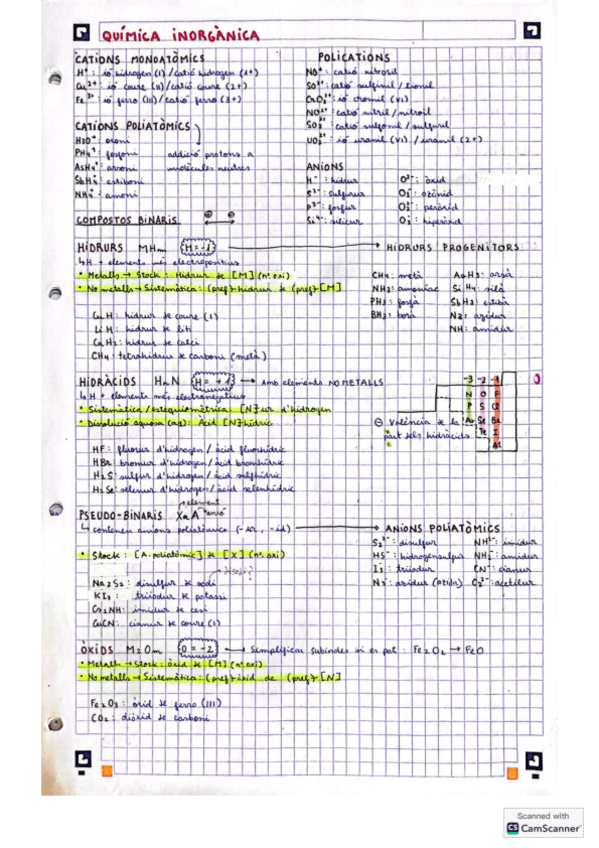 QUÍMICA INORGÀNICA
CATIONS MONOATÒMICS
H⁺: ió hidrogen (I) / catió hidrogen (1+)
Cu²⁺: ió coure (II) / catió coure (2+)
Fe³⁺: ió ferro (III) / catió ferro (3+)
CATIONS POLIATÒMICS
H3O⁺: oxoni
PH4⁺: fosfoni
AsH4⁺: arsoni
SbH4⁺: estiboni
NH4⁺: amoni
addició protons a
molècules neutres
POLICATIONS
NO⁺: catió nitrosil
SO²⁺: catió sulfinil / tionil
CrO2²⁺: ió cromil (VI)
NO2⁺: catió nitril / nitroil
SO2²⁺: catió sulfonil / sulfuril
UO2²⁺: ió uranil (VI) / uranil (2+)
ANIONS
H⁻: hidrur
S²⁻: sulfurur
P³⁻: fosfur
Si⁴⁻: silicur
O²⁻: òxid
O3⁻: ozònid
O2²⁻: peròxid
O2⁻: hiperòxid
COMPOSTOS BINARIS
HIDRURS MHm {H = -1}
↳ H + elements més electropositius
• Metalls → Stock: Hidrur de [M] (nº oxi)
• No metalls → Sistemàtica: (pref) hidrur de (pref) [M]
CuH: hidrur de coure (I)
LiH: hidrur de liti
CaH2: hidrur de calci
CH4: tetrahidrur de carboni (metà)
HIDRURS PROGENITORS
CH4: metà
NH3: amoníac
PH3: fosfà
BH3: borà
AsH3: arsà
SiH4: silà
SbH3: estibà
N3: azidur
NH: amidur
HIDRÀCIDS HnN {H = +1} → Amb elements NO METALLS
↳ H + elements més electronegatius
• Sistemàtica / estequiomètrica: [N]-ur d'hidrogen
• Dissolució aquosa (aq): Àcid [N]-hídric
HF: fluorur d'hidrogen / àcid fluorhídric
HBr: bromur d'hidrogen / àcid bromhídric
H2S: sulfur d'hidrogen / àcid sulfhídric
H2Se: selenur d'hidrogen / àcid selenhídric
-3 -2 -1
N O F
P S Cl
As Se Br
Te I
At
⊖ València de la
part dels hidràcids
PSEUDO-BINARIS Xn A
element
anió
↳ contenen anions poliatòmics (-ur, -id)
• Stock: [A. poliatòmic] de [X] (nº. oxi)
Na2S2: disulfur de sodi
KI3: triiodur de potassi
Cs2NH: imidur de cesi
CuCN: cianur de coure (I)
ANIONS POLIATÒMICS
S2²⁻: disulfur
HS⁻: hidrogensulfur
I3⁻: triiodur
N3⁻: azidur (azida)
NH²⁻: imidur
NH2⁻: amidur
CN⁻: cianur
C2²⁻: acetilur
ÒXIDS M2Om {O = -2} → Simplificar subíndex si es pot: Fe2O2 → FeO
• Metalls → Stock: òxid de [M] (nº. oxi)
• No metalls → Sistemàtica: (pref) òxid de (pref) [N]
Fe2O3: òxid de ferro (III)
CO2: diòxid de carboni
Scanned with
CS CamScanner